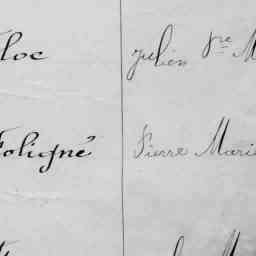 loc Julien Pre M
Foligné Pierre Marie